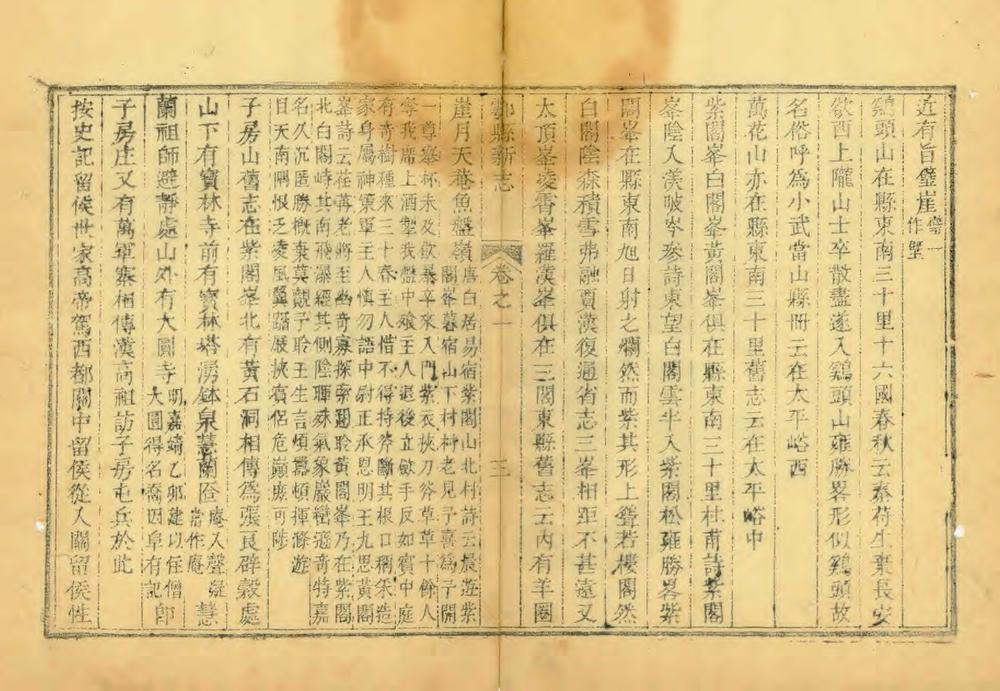 近有旨璧崖璧一作堅
鷄頭山在縣東南三十里十六國春秋云秦苻生棄長安
欲西上隴山士卒散盡遂入鷄頭山雍勝畧形似鷄頭故
名俗呼爲小武當山縣冊云在太平峪西
萬花山亦在縣東南三十里舊志云在太平峪中
紫閣峯白閣峯黃閣峯俱在縣東南三十里杜甫詩紫閣
峯陰入渼陂岑參詩東望白閣雲半入紫閣松雍勝畧紫
閣峯在縣東南旭日射之爛然而紫其形上聳若樓閣然
白閣陰森積雪弗融賈漢復通省志三峯相距不甚遠又
太頂峯凌霄峯羅漢峯俱在三閣東縣舊志云內有羊圈
崖月天菴魚盤嶺唐白居易宿紫閣山北村詩云晨遊紫
閣峯暮宿山下村村老見予喜爲予開
一尊舉杯未及飮暴卒來入門紫衣挾刀斧草草十餘人
奪我席上酒掣我盤中飧主人退後立斂手反如賓中庭
有奇樹種來三十春主人惜不得持斧斷其根口稱采造
家身屬神策軍主人愼勿語中尉正承恩明王九思黃閣
峯詩云荏苒老將至幽奇寡探索翹聆黃閣峯乃在紫閣
北白閣峙其南飛瀑經其側陰暉殊氣象巖巒逈奇特嘉
名久沉匿勝槪棄莫覿予聆王生言煩囂頓揮滌遊
目天南隅恨乏凌風翼躋嚴挾賓侶危巔庶可陟
子房山舊志在紫閣峯北有黃石洞相傳爲張良辟穀處
山下有寶林寺前有寶林塔湧鉢泉慧蘭㕎庵入聲疑當作庵慧
蘭祖師避靜處山外有大圓寺明嘉靖乙卯建以住僧大圓得名喬因阜有記卽
子房庄又有萬軍寨相傳漢高祖訪子房屯兵於此
按史記留侯世家高帝駕西都關中留侯從入關留侯性
鄠縣新志
卷之一
三